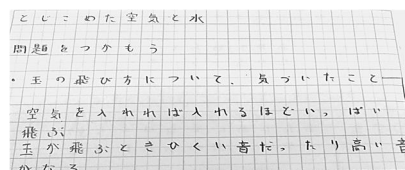 とじこめた空気と水
問題をつかもう
・玉の飛び方について、気づいたこと
空気を入れれば入れるほどいっぱい
飛ぶ
玉が飛ぶときひくい音だったり高い音
がなる